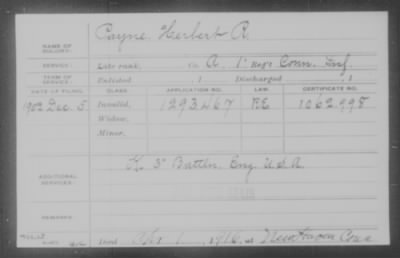 Payne Herbert R.
NAME OF SOLDIER:
SERVICE: Late rank, Co. A, 1" Reg't Conn. Inf.
TERM OF SERVICE: Enlisted , 1 Discharged , 1
DATE OF FILING. CLASS. APPLICATION NO. LAW. CERTIFICATE NO.
1902 Dec. 5 Invalid, 1293467 1062998
Widow,
Minor,
ADDITIONAL SERVICES: 3" Battln. Eng. U.S.A.
REMARKS:
Died 1, 1916, at New Haven Conn